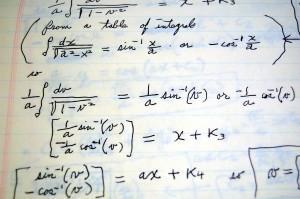 1/a ∫ dv/√(1-v²) = x + K₃
(from a table of integrals
∫ dx/√(a²-x²) = sin⁻¹ x/a · or - cos⁻¹ x/a)
so
1/a ∫ dv/√(1-v²) = 1/a sin⁻¹(v) or -1/a cos⁻¹(v)
[1/a sin⁻¹(v)
-1/a cos⁻¹(v)] = x + K₃
[sin⁻¹(v)
-cos⁻¹(v)] = ax + K₄ so v =